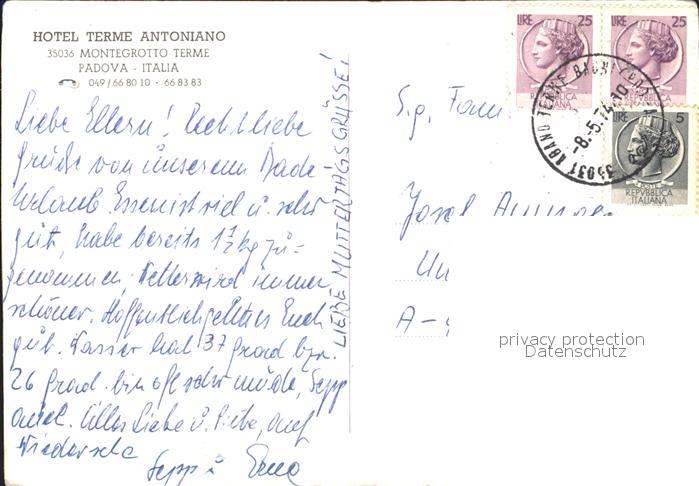 HOTEL TERME ANTONIANO
35036 MONTEGROTTO TERME
PADOVA - ITALIA
049/66 80 10 - 66 83 83
Liebe Eltern! Recht liebe
Grüße von unserem Bade
Urlaub. Essen ist viel u. sehr
gut, habe bereits 1½ kg zu-
genommen, Wetter wird immer
schöner. Hoffentlich geht es Euch
gut. Wasser hat 37 grad bzw.
26 Grad. bin oft sehr müde, Sepp
auch. Alles Liebe u. Liebe, auf
Wiedersehe
Sepp u
LIEBE MUTTERTAGSGRÜSSE!
LIRE 25
REPVBBLICA
ITALIANA
LIRE 25
REPVBBLICA
ITALIANA
LIRE 5
REPVBBLICA
ITALIANA
35031 ABANO TERME
-8.5.74
Sig. Fam
Josef
A-
privacy protection
Datenschutz